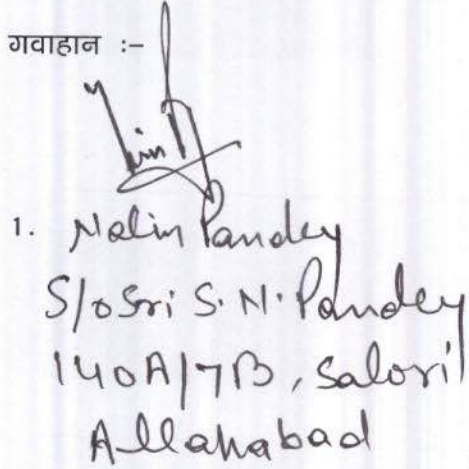 गवाहान :-
1. Nalin Pandey
S/o Sri S.N. Pandey
140A/7B, Salori
Allahabad